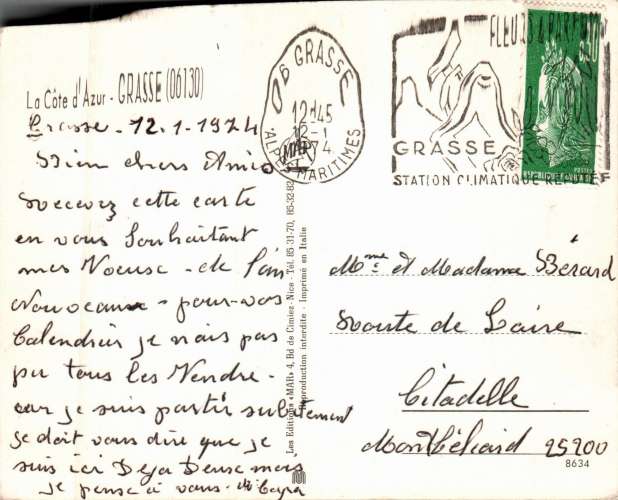 La Côte d'Azur - GRASSE (06130)
Grasse - 12.1-1974
Bien chers Amis
recevez cette carte
en vous Souhaitant
mes Voeux - de l'an
Nouveaux - pour vos
Calendrier je n'ais pas
pu tous les Vendre -
car je suis partir subitement
je doit vous dire que je
suis ici Deja Deux mois
je pense à vous -
06 GRASSE
12H45
12-1
1974
ALPES MARITIMES
FLEURS & PARFUMS
GRASSE
STATION CLIMATIQUE
0,30
POSTES
REPUBLIQUE FRANCAISE
Les Editions «MAR» 4, Bd de Cimiez - Nice - Tél. 85 31-70, 85-32-82
Reproduction interdite - Imprimé en Italie
Mme et Madame Bérard
route de
Citadelle
Montbéliard 25200
8634